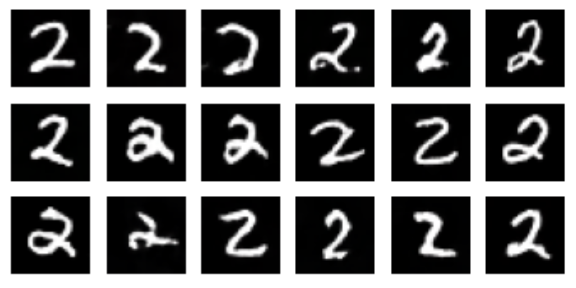 2 2 2 2 2 2
2 2 2 2 2 2
2 2 2 2 2 2